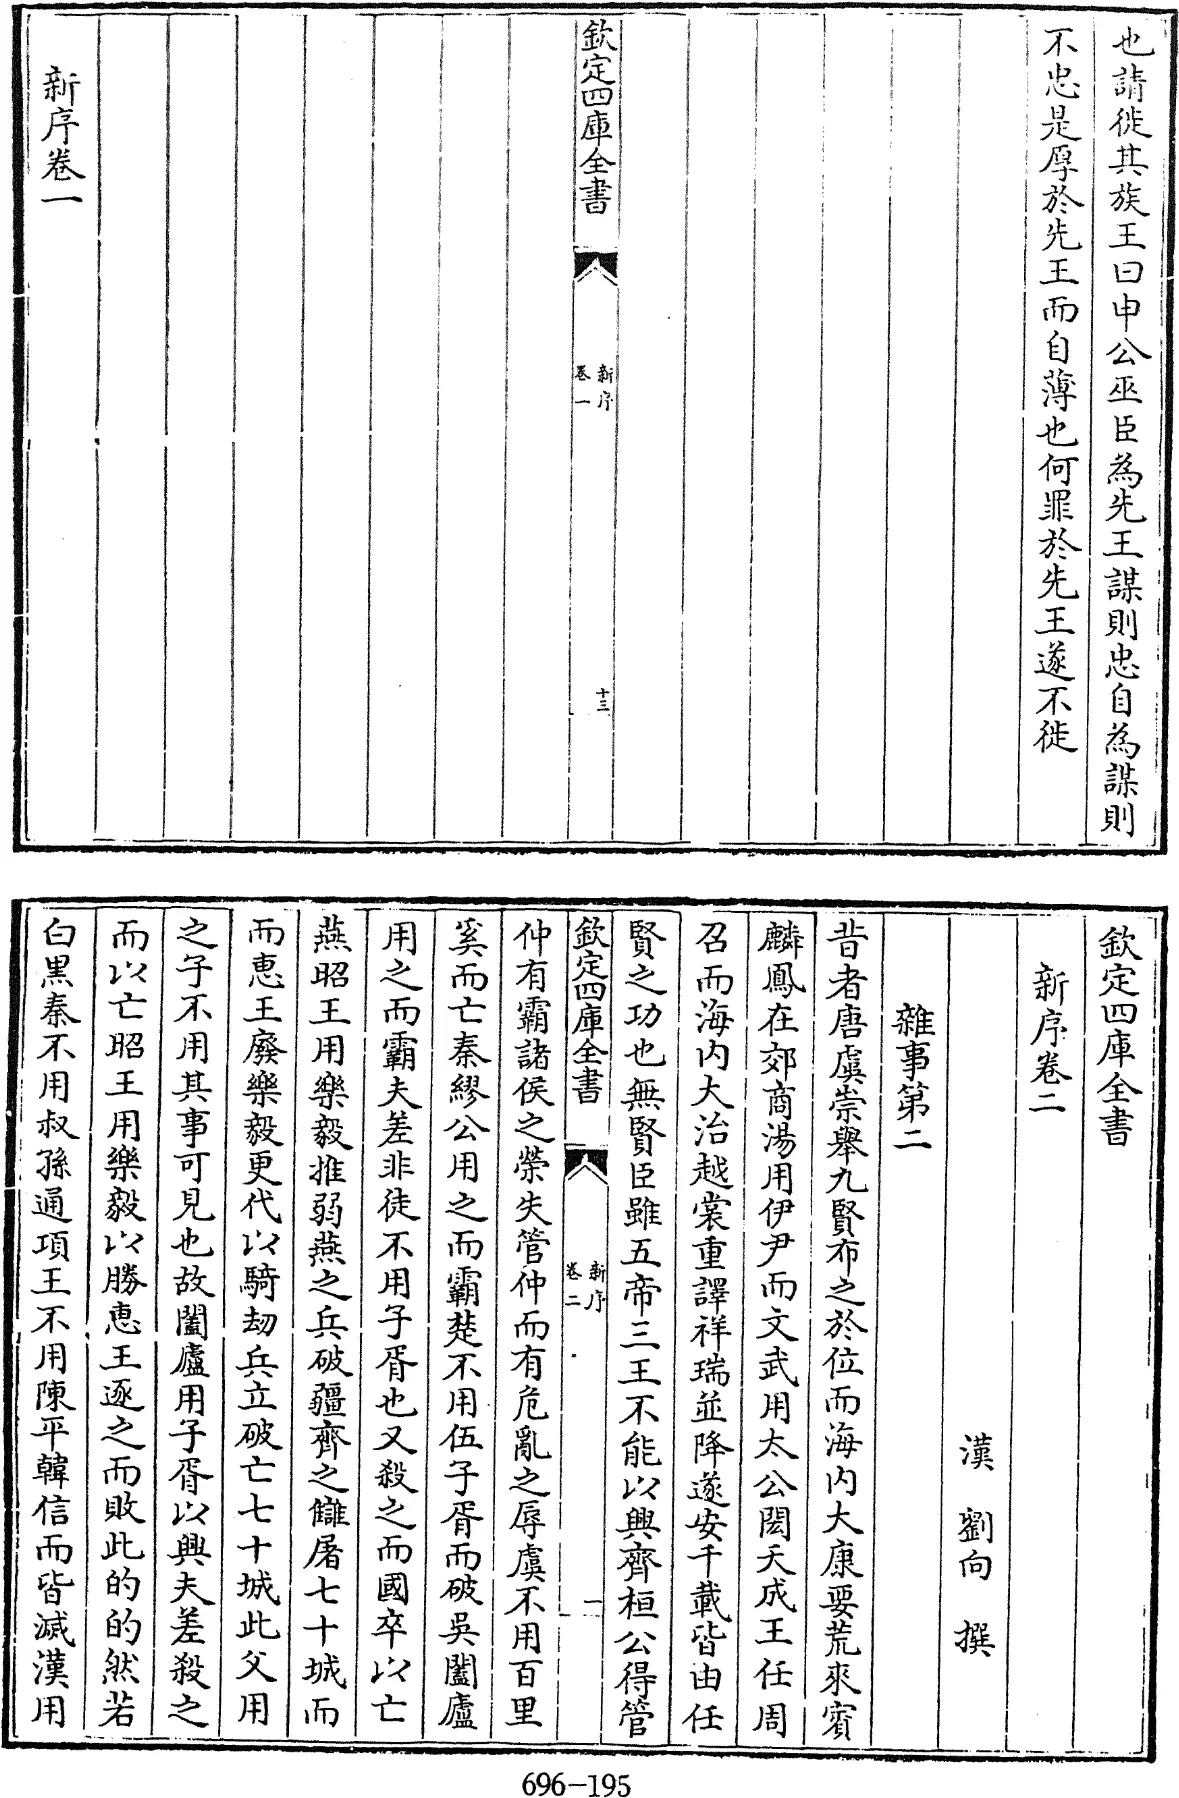 也請徙其族王曰申公巫臣為先王謀則忠自為謀則
不忠是厚於先王而自薄也何罪於先王遂不徙
欽定四庫全書
新序
卷一
十三
新序卷一
欽定四庫全書
新序卷二
漢 劉向 撰
雜事第二
昔者唐虞崇舉九賢布之於位而海内大康要荒來賓
麟鳳在郊商湯用伊尹而文武用太公閎夭成王任周
召而海内大治越裳重譯祥瑞並降遂安千載皆由任
賢之功也無賢臣雖五帝三王不能以興齊桓公得管
欽定四庫全書
新序
卷二
一
仲有霸諸侯之榮失管仲而有危亂之辱虞不用百里
奚而亡秦繆公用之而霸楚不用伍子胥而破吳闔廬
用之而霸夫差非徒不用子胥也又殺之而國卒以亡
燕昭王用樂毅推弱燕之兵破疆齊之讎屠七十城而
而惠王廢樂毅更代以騎劫兵立破亡七十城此父用
之子不用其事可見也故闔廬用子胥以興夫差殺之
而以亡昭王用樂毅以勝惠王逐之而敗此的的然若
白黑秦不用叔孫通項王不用陳平韓信而皆滅漢用
696-195